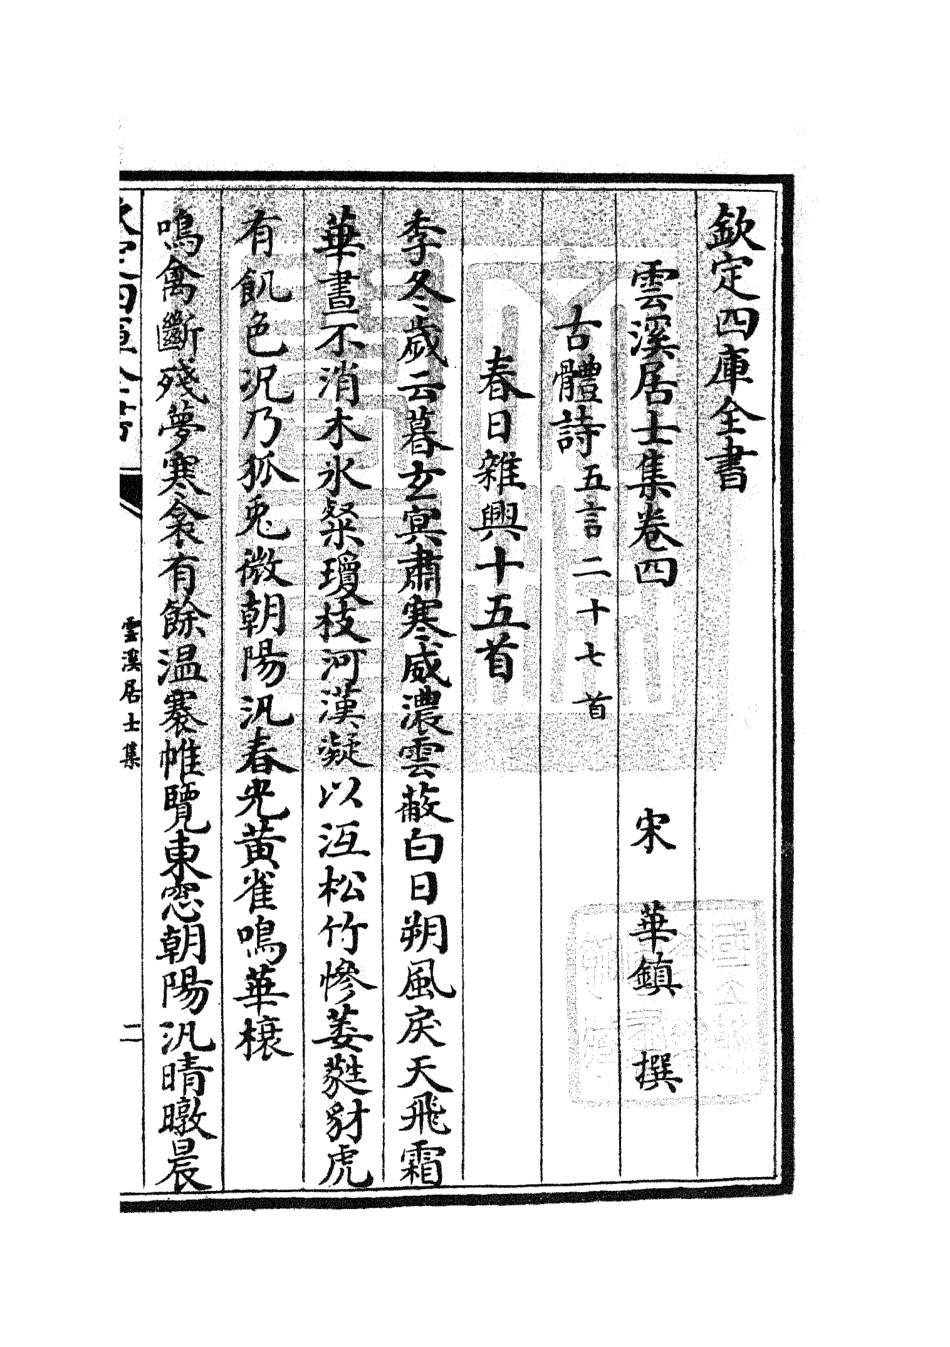 欽定四庫全書
雲溪居士集卷四　宋　華鎮　撰
古體詩五言二十七首
春日雜興十五首
季冬歲云暮玄冥肅寒威濃雲蔽白日朔風戾天飛霜
華晝不消木氷粲瓊枝河漢凝以沍松竹慘萎蕤豺虎
有飢色况乃狐兎微朝陽汎春光黄雀鳴華榱
鳴禽斷殘夢寒衾有餘温褰帷覽東窓朝陽汎晴暾晨
欽定四庫全書
雲溪居士集
二